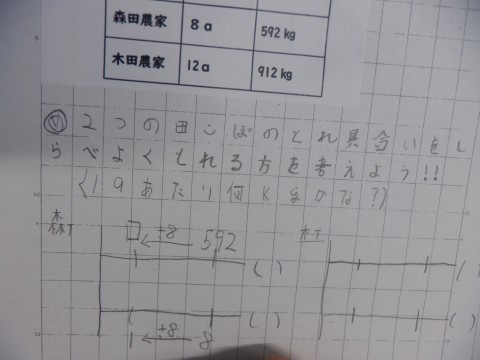 森田農家 8a 592kg
木田農家 12a 912kg
め 2つの田んぼのとれ具合いをし
らべよくとれる方を考えよう!!
(1aあたり何Kgかな?)
森T □ ÷8 592 木T
( ) ( )
( ) ( )
1 ÷8 8